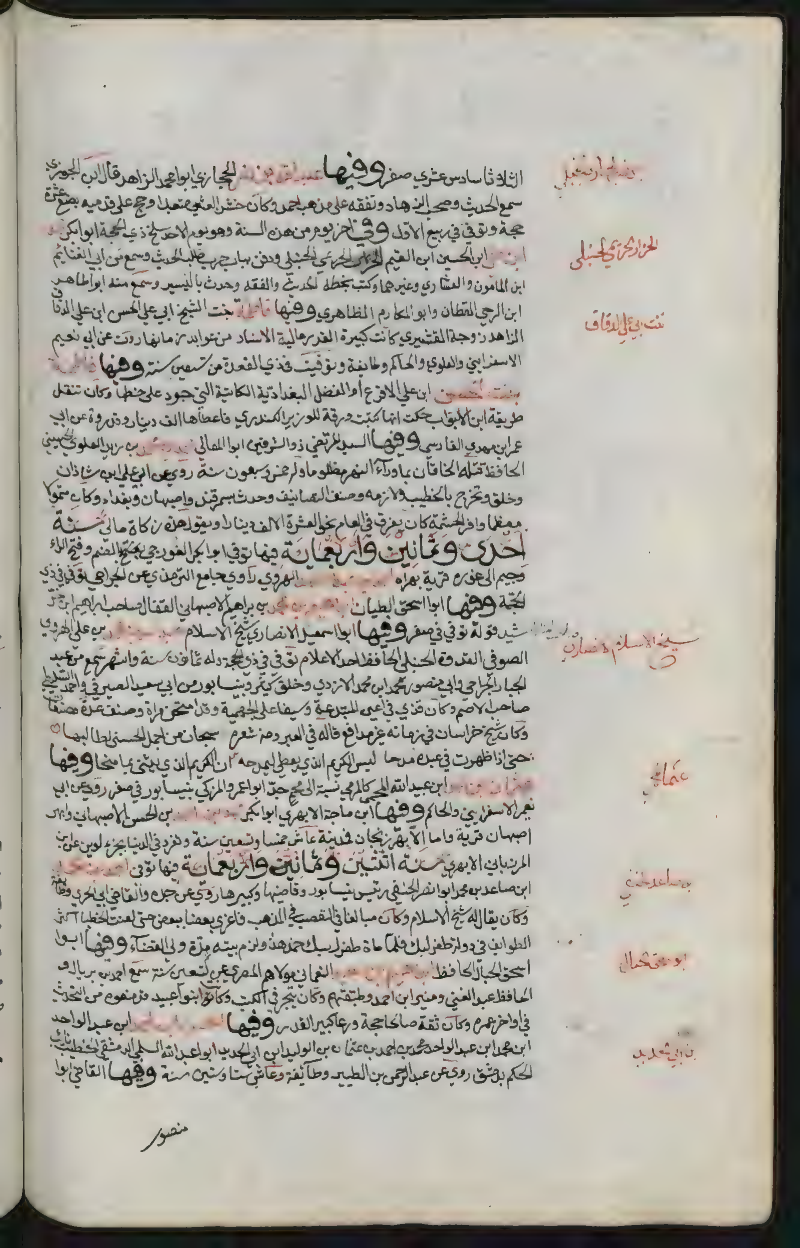 الثلاثا سادس عشري صفر وفيها عبد الله بن نصر الحجازي ابو محمد الزاهد قال ابن الجوزي
سمع الحديث وصحب الزهاد وتفقه على مذهب احمد وكان خشن العيش متعبدا وحج على قدميه بضع عشرة
حجة وتوفي في ربيع الاول وفي اخر يوم من هذه السنة وهو يوم الاحد سلخ ذي الحجة ابو بكر
ابن الحسين ابن القيم الخزاز الحريمي الحنبلي ودفن بباب حرب طلب الحديث وسمع من ابي الغنايم
ابن المامون والعشاري وغيرهما وكتب بخطه الحديث والفقه وحدث باليسير وسمع منه ابو طاهر
ابن الرحبي القطان وابو المكارم الظاهري وفيها فاطمة بنت الشيخ ابي علي الحسن ابن علي الدقاق
الزاهد زوجة القشيري كانت كبيرة القدر عالية الاسناد من عوابد زمانها روت عن ابي نعيم
الاسفرايني والعلوي والحاكم وطايفة وتوفيت في ذي القعدة من تسعين سنة وفيها فاطمة
بنت الحسن ابن علي الاقرع ام الفضل البغدادية الكاتبة التي جود على خطها وكانت تنقل
طريقة ابن البواب حكت انها كتبت ورقة للوزير الكندري فاعطاها الف دينار وقد روة عن ابي
عمر ابن مهدي الفارسي وفيها السيد المرتضى ذو الشرفين ابو المعالي محمد بن محمد بن زيد العلوي الحسيني
الحافظ قتله الخاقان بما وراء النهر مظلوما وله خمس وسبعون سنة روى عن ابي علي ابن شاذان
وخلق وتخرج بالخطيب ولازمه وصنف التصانيف وحدث بسمرقند واصبهان وبغداد وكان متمولا
معظما وافر الحشمة كان يفرق في العام نحو العشرة الاف دينار ويقول هذه زكاة مالي سنة
احدى وثمانين واربعمائة فيها توفي ابو بكر الغورجي بضم الغين وفتح الراء
وجيم الى غورة قرية بهراة احمد بن عبد الصمد الهروي راوي جامع الترمذي عن الجراحي توفي في ذي
الحجة وفيها ابو اسحق الطيان ابراهيم بن محمد بن براهيم الاصبهاني القفال صاحب ابراهيم ابن خرشيد قوله توفي في صفر وفيها ابو اسمعيل الانصاري شيخ الاسلام عبد الله بن محمد بن علي الهروي
الصوفي القدوة الحنبلي الحافظ احد الاعلام توفي في ذي الحجة وله ثمانون سنة واشهر سمع من عبد
الجبار الجراحي وابي منصور محمد ابن محمد الازدي وخلق كثير وبنيسابور من ابي سعيد الصيرفي واحمد السليطي
صاحب الاصم وكان قذى في اعين المبتدعة وسيفا على الجهمية وقد امتحن مراة وصنف عدة مصنفات
وكان شيخ خراسان في زمانه غير مدافع قاله في العبر ومن شعره سبحان من اجمل الحسنى لطالبها
حتى اذا ظهرت في عبده مدحا ليس الكريم الذي يعطي لتمدحه ان الكريم الذي يثني بما منحا وفيها
عثمان بن محمد ابن عبيد الله المحمي كالرمي نسبة الى محم جد ابو عمرو المزكي بنيسابور في صفر روى عن ابي
نعيم الاسفرايني والحاكم وفيها ابن ماجة الابهري ابو بكر محمد بن احمد بن الحسن الاصبهاني وابهر
اصبهان قرية واما الابهر زنجان فمدينة عاش خمسا وتسعين سنة وتفرد في الدنيا بجزء لوين عن ابن
المرزبان الابهري سنة اثنتين وثمانين واربعمائة فيها توفي احمد بن محمد
ابن صاعد بن محمد ابو نصر الحنفي رئيس نيسابور وقاضيها وكبيرها روى عن جده والقاضي ابي بكر الحيري وطائفة
وكان يقال له شيخ الاسلام وكان مبالغا في التعصب في المذهب فاغرى بعضا ببعض حتى لعنت الخطباء اكثر
الطوايف في دولة طغرلبك فلما مات طغرلبك خمد هذا ولزم بيته مدة ولي القضاء وفيها ابو
اسحق الحبال الحافظ ابراهيم بن سعيد النعماني مولاهم المصري عن تسعين سنة سمع احمد بن بريال و
الحافظ عبد الغني ومنير ابن احمد وطبقتهم وكان يتجر في الكتب وكانوا بنو عبيد قد منعوه من التحديث
في اواخر عمره وكان ثقة صالحا حجة ورعا كبير القدر وفيها الحسن بن احمد ابن عبد الواحد
ابن محمد ابن عبد الواحد محمد بن احمد بن عثمان بن الوليد ابن ابي الحديد ابو عبد الله السلمي الدمشقي الخطيب نائب
الحكم بدمشق روى عن عبد الرحمن بن الطبيز وطائفة وعاش ستا وستين سنة وفيها القاضي ابو
منصور
الخزاز الحريمي الحنبلي
بنت ابي علي الدقاق
شيخ الاسلام الانصاري
عثمان المحمي
بن صاعد الحنفي
ابو اسحق الحبال
بن ابي الحديد